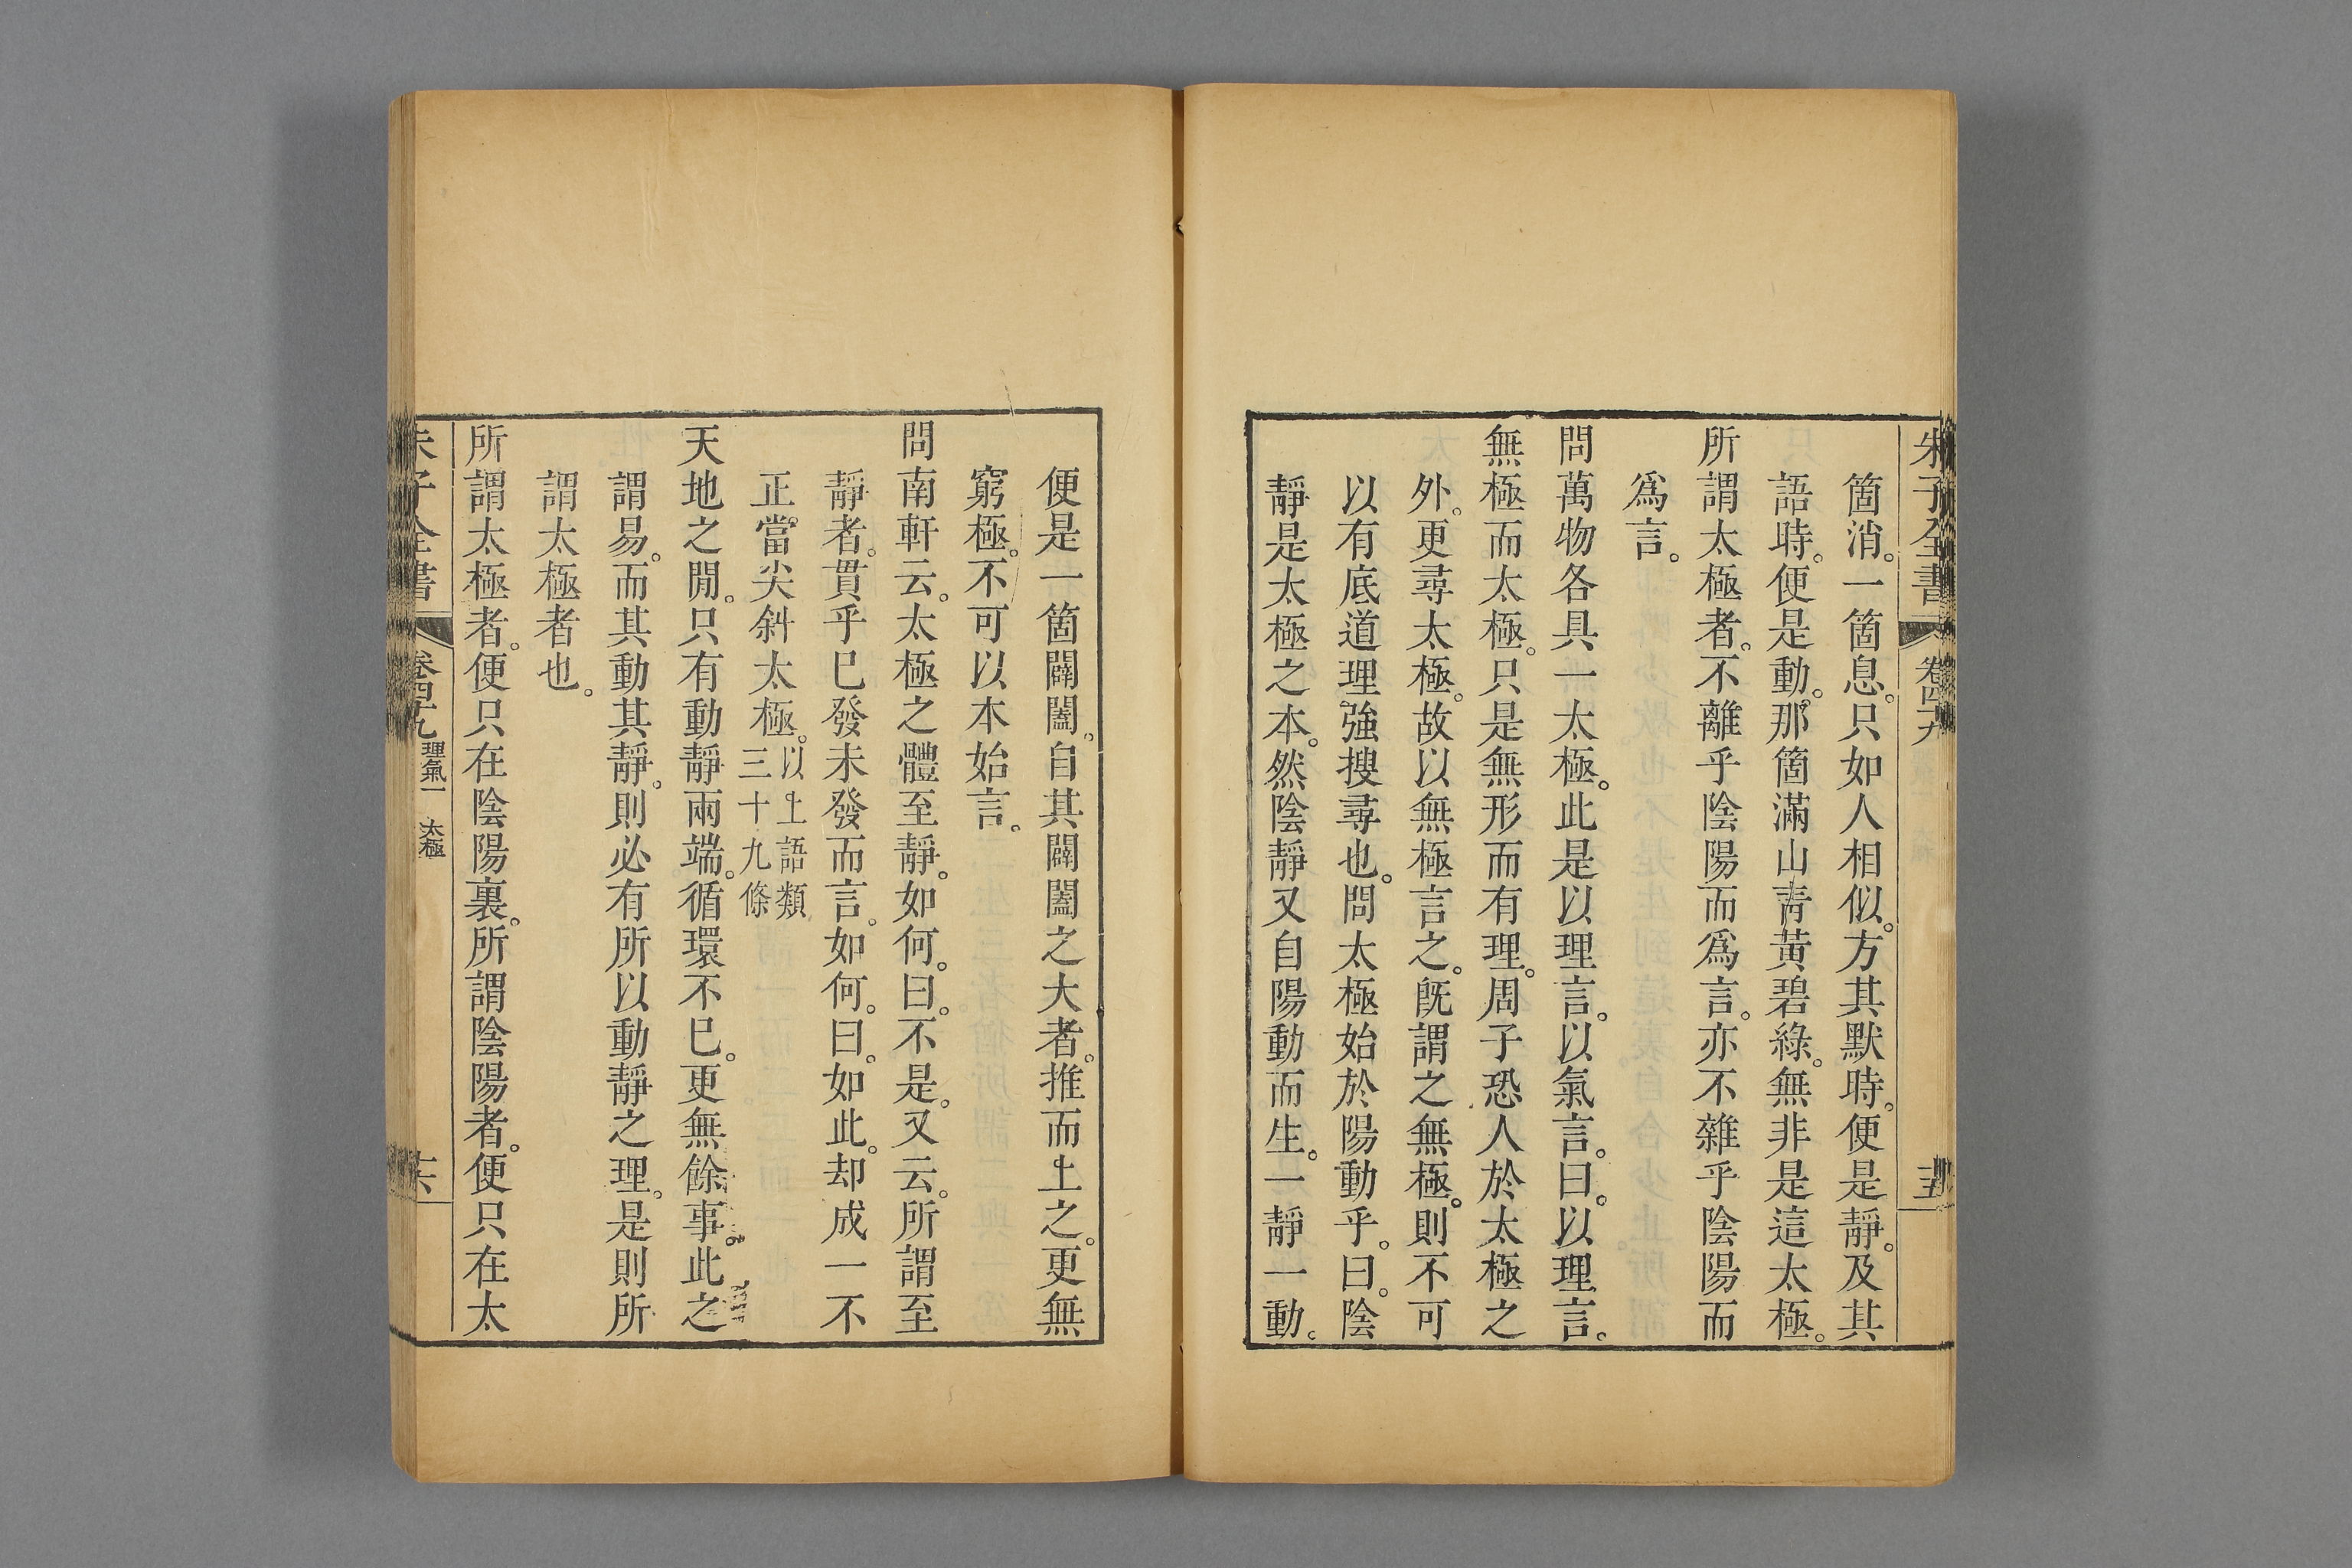 朱子全書 卷四十九 十五
箇消。一箇息。只如人相似。方其默時。便是靜。及其
語時。便是動。那箇滿山靑黃碧綠。無非是這太極。
所謂太極者。不離乎陰陽而爲言。亦不雜乎陰陽而
爲言。
問萬物各具一太極。此是以理言。以氣言。曰。以理言。
無極而太極。只是無形而有理。周子恐人於太極之
外。更尋太極。故以無極言之。旣謂之無極。則不可
以有底道理強搜尋也。問太極始於陽動乎。曰。陰
靜是太極之本。然陰靜又自陽動而生。一靜一動。
便是一箇闢闔。自其闢闔之大者。推而上之。更無
窮極。不可以本始言。
問南軒云。太極之體至靜。如何。曰。不是。又云。所謂至
靜者。貫乎已發未發而言。如何。曰。如此。却成一不
正當尖斜太極。以上語類三十九條
天地之閒。只有動靜兩端。循環不已。更無餘事。此之
謂易。而其動其靜。則必有所以動靜之理。是則所
謂太極者也。
所謂太極者。便只在陰陽裏。所謂陰陽者。便只在太
朱子全書 卷四十九 理氣一 太極 十六